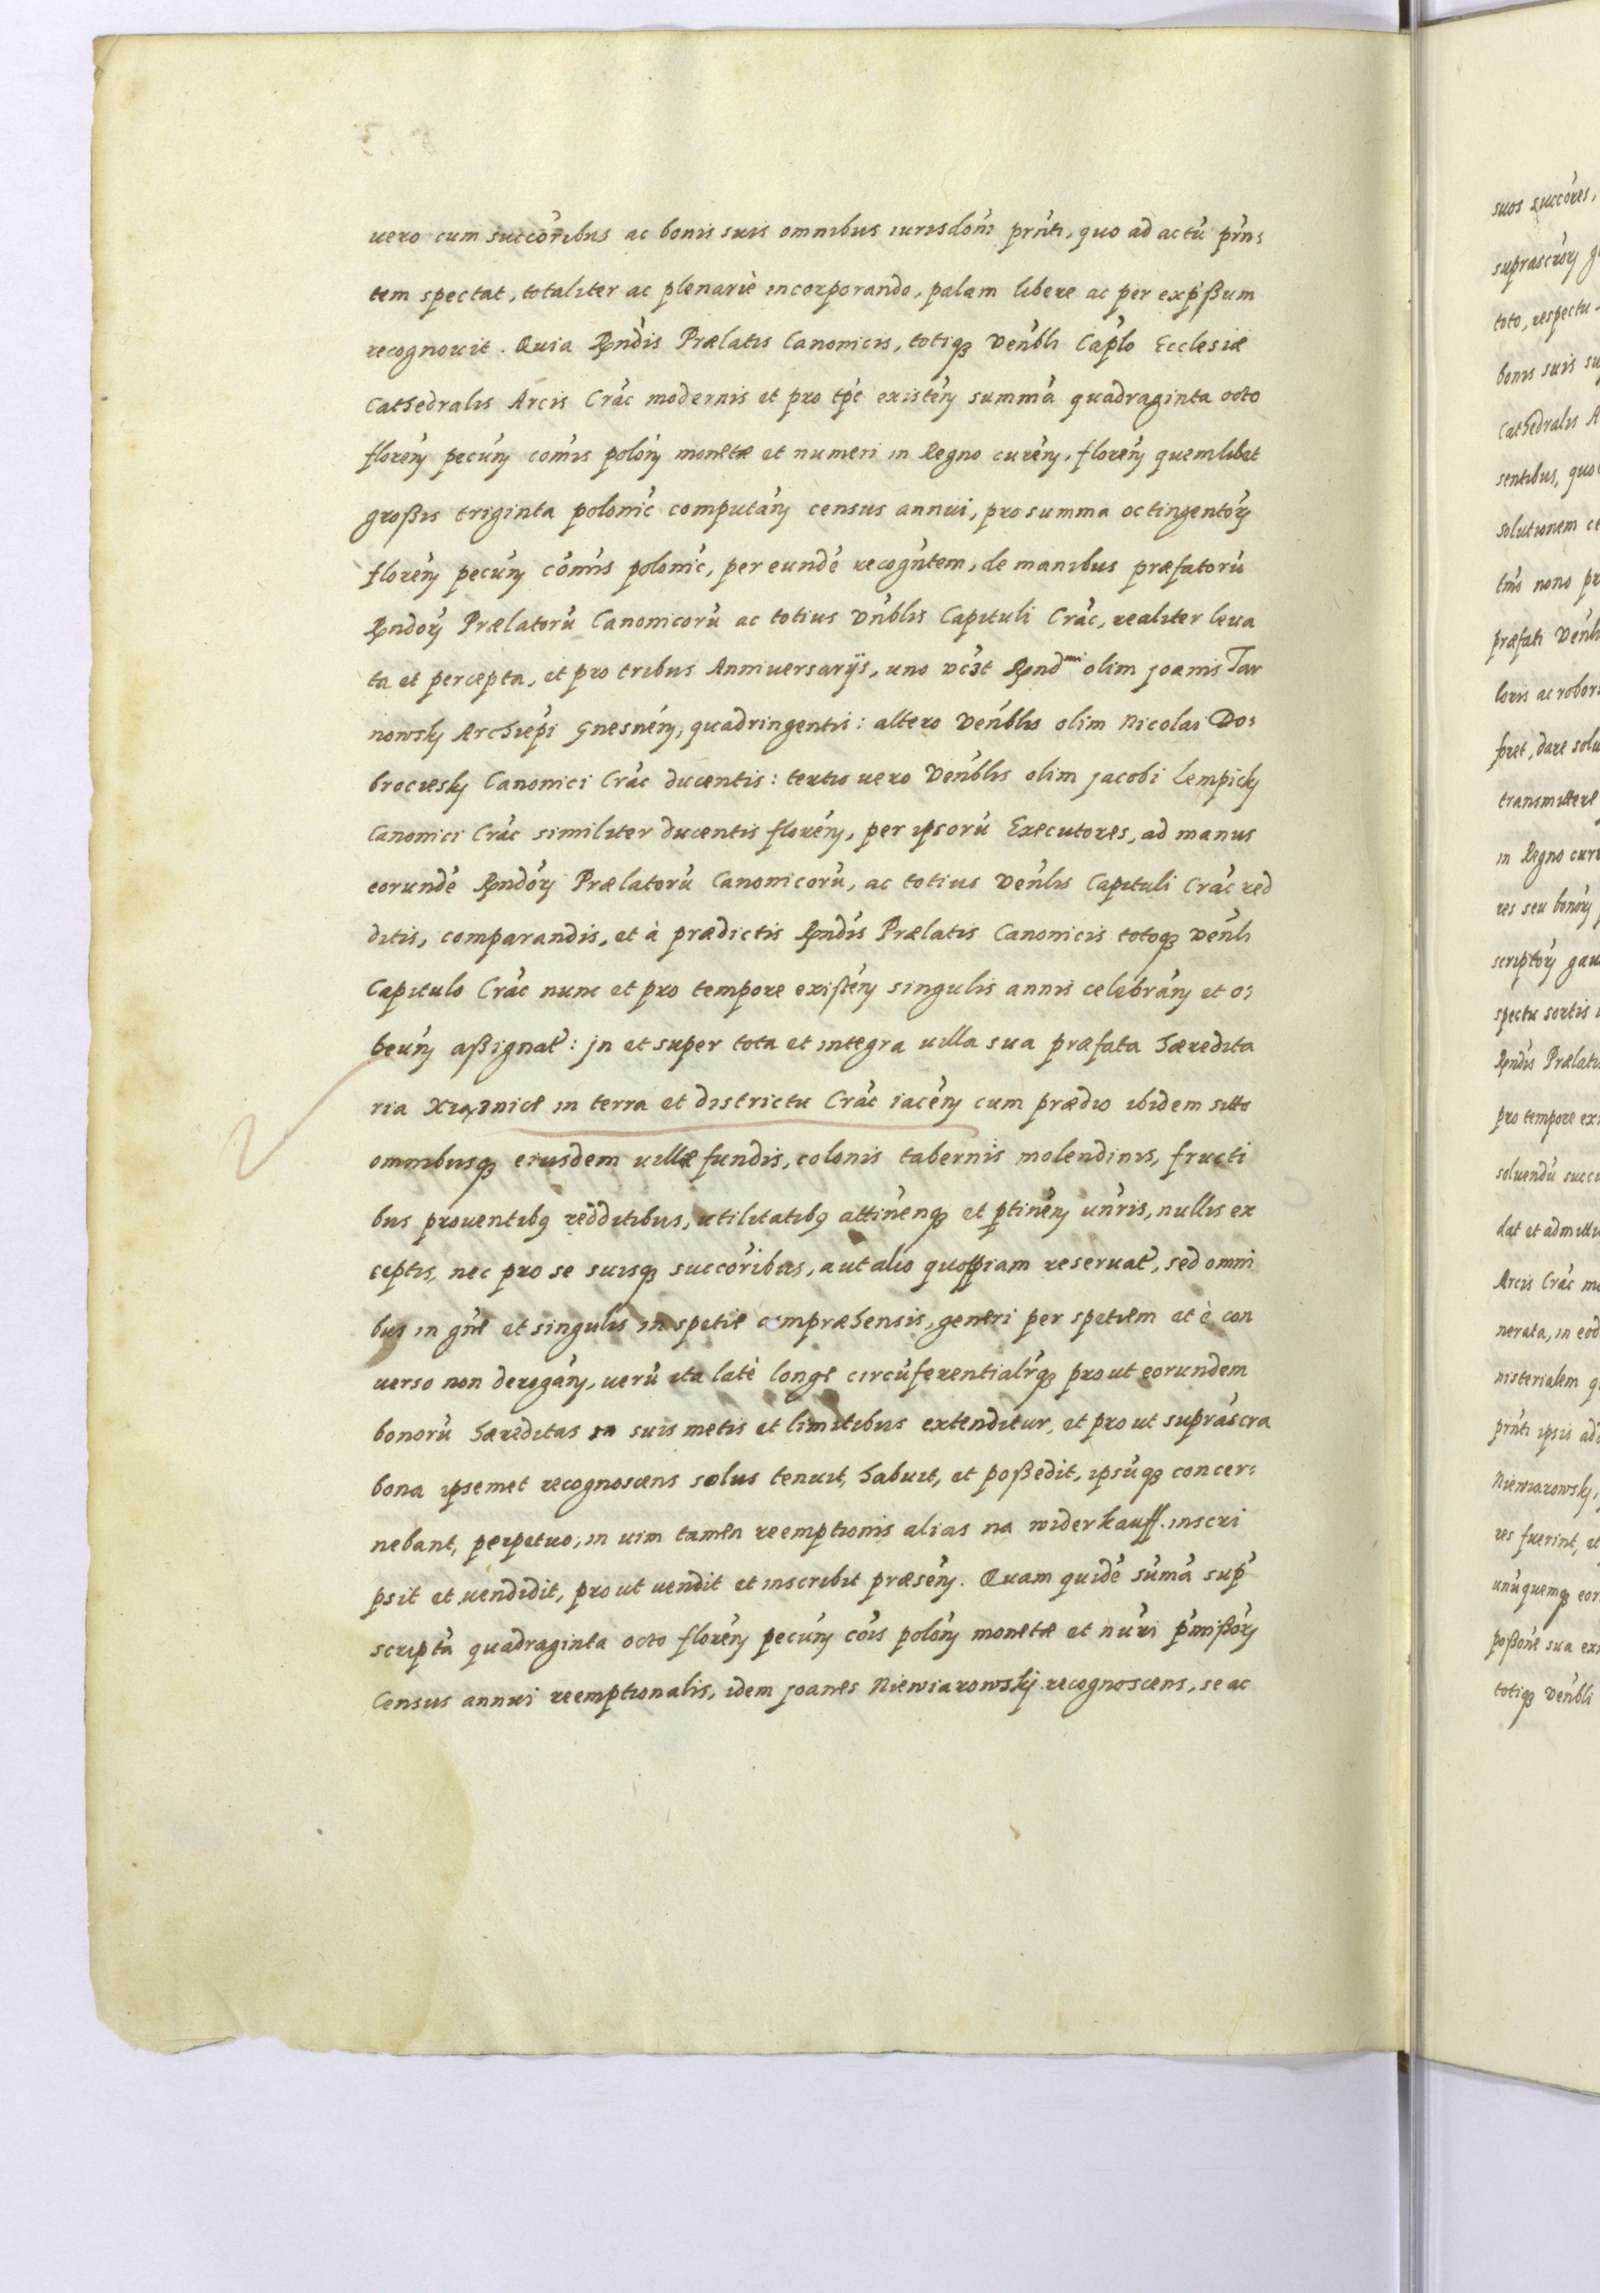 uero cum succoribus ac bonis suis omnibus iurisdoni prnti, quo ad actu prn:
tem spectat, totaliter ac plenariè incorporando, palam libere ac per expßum
recognouit. Quia Rndis Prælatis Canonicis, totiq3 Venbli Caplo Ecclesiæ
Cathedralis Arcis Crac modernis et pro tpe existen summa quadraginta octo
floren pecun comis polon monetæ et numeri in Regno curen, floren quemlibet
großis triginta polonic computan census annui, pro summa octingentor
floren pecun comis polonic, per eunde recogntem, de manibus præfatoru
Rndor Prælatoru Canonicoru ac totius Vnblis Capituli Crac, realiter leua
ta et percepta, et pro tribus Anniuersarijs, uno vc3t Rnd^mi olim joanis Tar
nowsky Archiepi Gnesnen, quadringentis: altero Venblis olim Nicolai Do:
brociesky Canonici Crac ducentis: tertio uero Venblis olim jacobi Lempicky
Canonici Crac similiter ducentis floren, per ipsoru Executores, ad manus
eorunde Rndor Prælatoru Canonicoru, ac totius Venlis Capituli Crac red
ditis, comparandis, et à prædictis Rndis Prælatis Canonicis totoq3 Venli
Capitulo Crac nunc et pro tempore existen singulis annis celebran et o:
beun aßignat: jn et super tota et integra uilla sua præfata hæredita
ria in terra et districtu Crac iacen cum prædio ibidem sitto
omnibusq3 eiusdem uillæ fundis, colonis tabernis molendinis, fructi
bus prouentibq redditibus, utilitatibq attinenq3 et ptinen unris, nullis ex
ceptis, nec pro se suisq3 succoribus, aut alio quopiam reseruat, sed omni
bus in gnle et singulis in spetie compræhensis, generi per spetiem et è con
uerso non derogan, ueru ita latè longe circuferentialrq3 prout eorundem
bonoru hæreditas in suis metis et limitibus extenditur, et pro ut suprascra
bona ipsemet recognoscens solus tenuit, habuit, et poßedit, ipsuq3 concer:
nebant, perpetuo, in uim tamen reemptionis alias na widerkauff. inscri
psit et uendidit, pro ut uendit et inscribit præsen. Quam quide suma sup
scripta quadraginta octo floren pecun cois polon monetæ et nuri pmißor
Census annui reemptionalis, idem joanes Niewiarowsky recognoscens, se ac